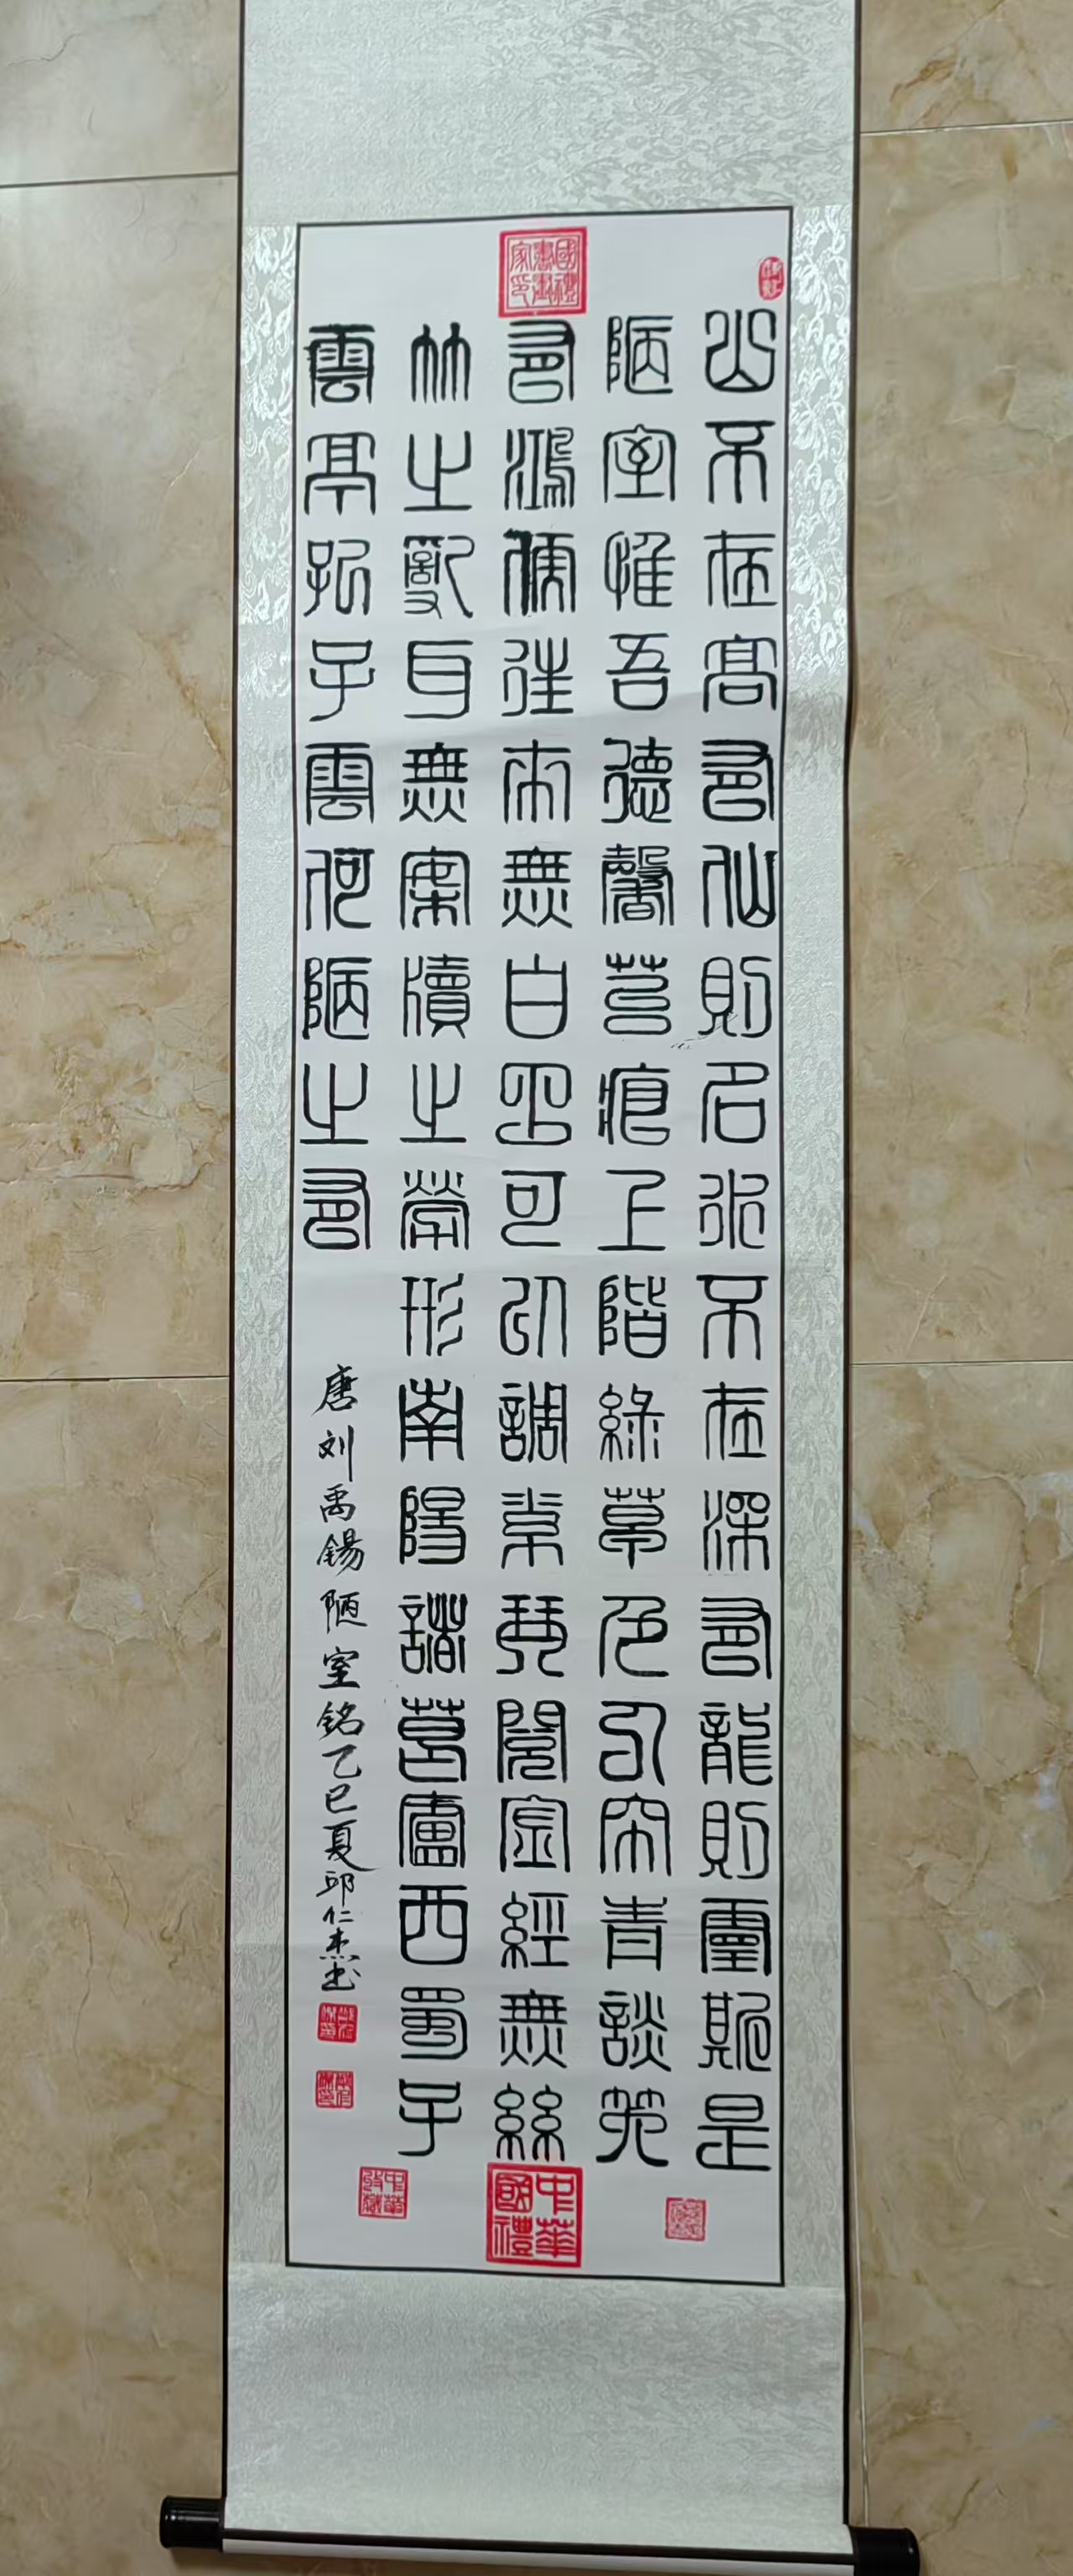 國禮書畫家印
山不在高有仙則名水不在深有龍則靈斯是
陋室惟吾德馨苔痕上階綠草色入帘青談笑
有鴻儒往來無白丁可以調素琴閱金經無絲
竹之亂耳無案牘之勞形南陽諸葛廬西蜀子
雲亭孔子雲何陋之有
唐刘禹锡陋室铭乙巳夏邱仁杰书
中華國禮